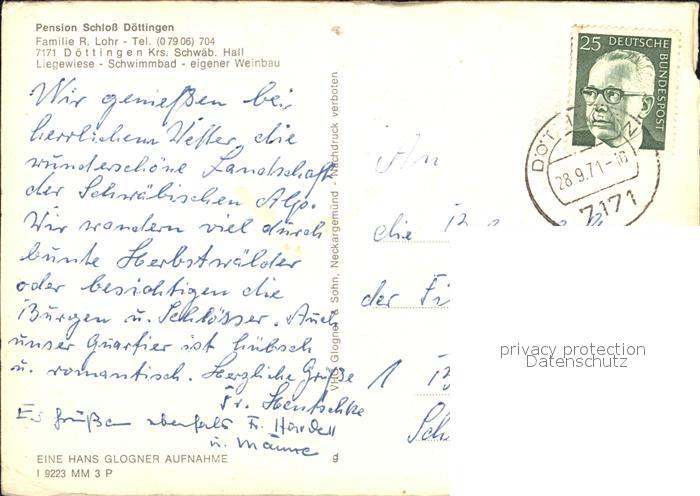 Pension Schloß Döttingen
Familie R. Lohr - Tel. (0 79 06) 704
7171 Döttingen Krs. Schwäb. Hall
Liegewiese - Schwimmbad - eigener Weinbau
Wir genießen bei
herrlichem Wetter die
wunderschöne Landschaft
der Schwäbischen Alp.
Wir wandern viel durch
bunte Herbstwälder
oder besichtigen die
Burgen u. Schlösser. Auch
unser Quartier ist hübsch
u. romantisch. Herzliche Grüße
Fr. Hentschke
Es grüßen ebenfalls Fr.
u.
EINE HANS GLOGNER AUFNAHME
I 9223 MM 3 P
VHG Glogner & Sohn, Neckargemünd - Nachdruck verboten.
g
25 DEUTSCHE BUNDESPOST
28.9.71-16
7171
An
die
der Fi
1
Sch
privacy protection
Datenschutz